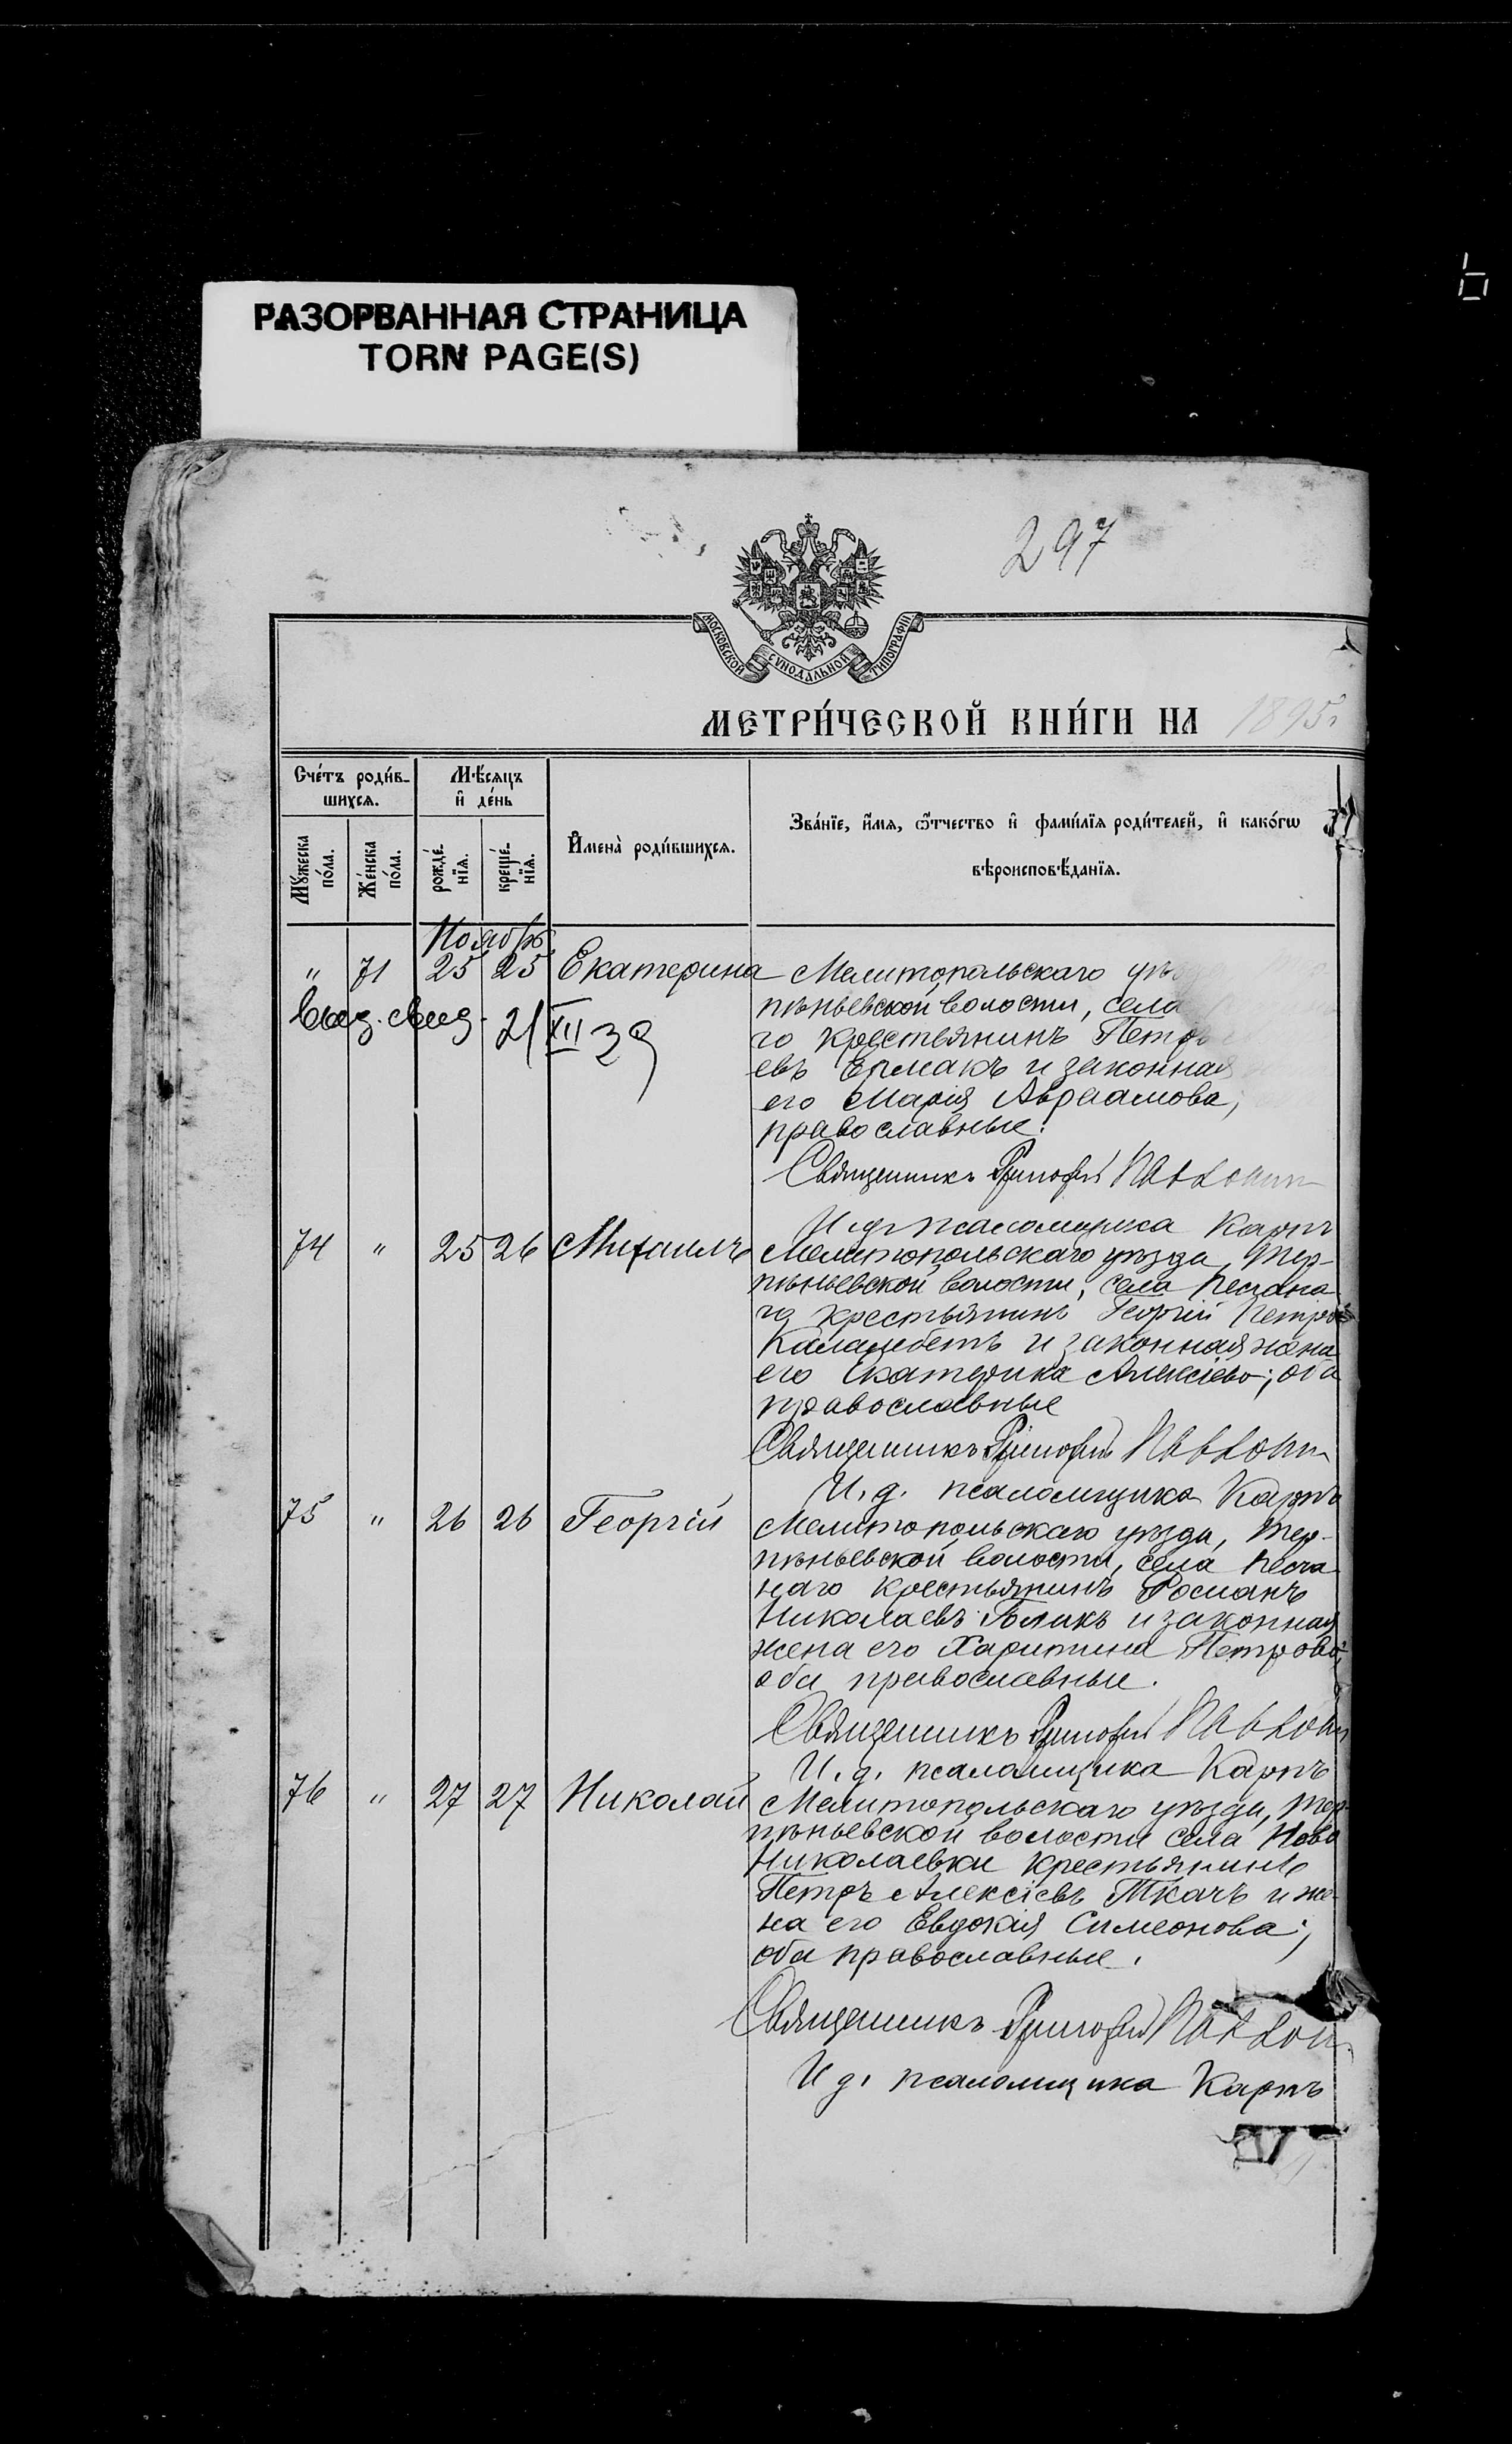 РАЗОРВАННАЯ СТРАНИЦА
TORN PAGE(S)
297
МОСКОВСКОЙ СУНОДАЛЬНОЙ ТИПОГРАФІИ
МЕТРИ́ЧЕСКОЙ КНИ́ГИ НА 1895г.
Сче́тъ роди́в-
шихся.
Мѣ́сяцъ
и҆ де́нь
Мꙋ́жеска
по́ла.
Же́нска
по́ла.
рожде́-
нїя.
креще́-
нїя.
И҆мена̀ роди́вшихся.
Зва́нїе, и҆́мя, ѻ҆́тчество и҆ фами́лїя роди́телей, и҆ како́гѡ
вѣроисповѣ́данїя.
Ноябрь
" 71 25 25 Екатерина Мелитопольскаго уѣз
пѣньевской волости, села
го крестьянинъ Петръ
евъ Ермакъ и законная
его Марія Авраамова,
православные.
Выд. свид. 21 XII 39
Священникъ Григорій
И. д. псаломщика Карпъ
74 " 25 26 Михаилъ Мелитопольскаго уѣзда, Тер-
пѣньевской волости, села Песчана
го крестьянинъ Георгій Петровъ
и законная жена
его Екатерина Алексіева; оба
православные
Священникъ Григорій
И. д. псаломщика Карпъ
75 " 26 26 Георгій Мелитопольскаго уѣзда, Тер-
пѣньевской волости, села Песча
наго крестьянинъ Романъ
Николаевъ и законная
жена его Харитина Петрова,
оба православные.
Священникъ Григорій
И. д. псаломщика Карпъ
76 " 27 27 Николай Мелитопольскаго уѣзда, Тер-
пѣньевской волости села Ново
Николаевки крестьянинъ
Петръ Алексіевъ Ткачъ и же-
на его Евдокія Симеонова;
оба православные.
Священникъ Григорій
И д. псаломщика Карпъ